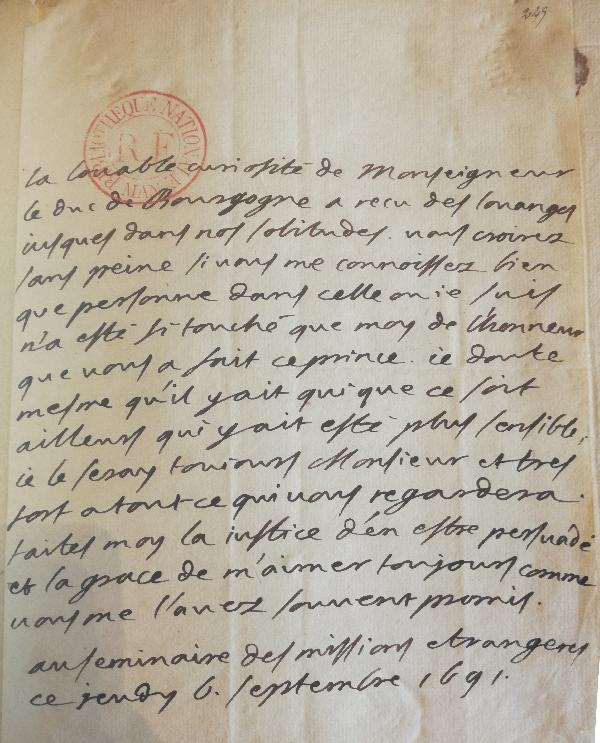 249
BIBLIOTHEQUE NATIONALE
R F
MAN
la louable curiosité de Monseigneur
le duc de Bourgogne a recu des louanges
iusques dans nos solitudes. uous croirez
sans peine si uous me connoissez bien
que personne dans celle ou ie suis
n'a esté si touché que moy de l'honneur
que uous a fait ce prince. ie doute
mesme qu'il y ait qui que ce soit
ailleurs qui y ait esté plus sensible,
ie le seray toujours Monsieur et tres
fort a tout ce qui uous regardera.
faites moy la iustice d'en estre persuadé
et la grace de m'aimer toujours comme
uous me l'auez souuent promis.
au seminaire des missions etrangeres
ce jeudy 6. septembre 1691.